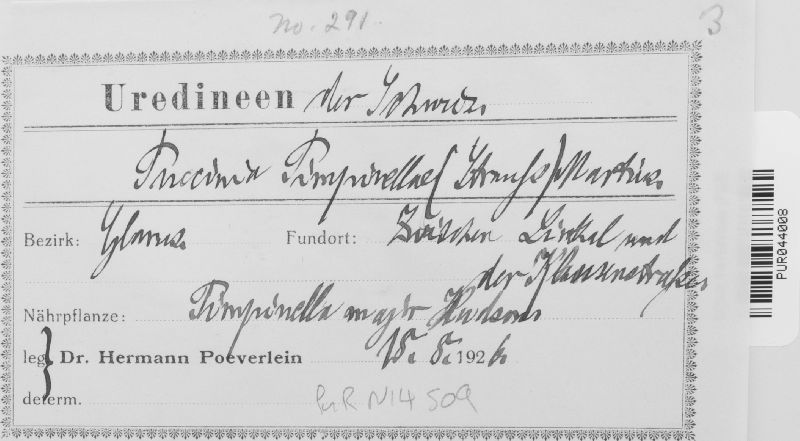 No. 291.
3
Uredineen der Schweiz.
Puccinia Pimpinellae (Strauss) Martius.
Bezirk: Glarus. Fundort: Zwischen Linthal und
der Klausenstrasse
Nährpflanze: Pimpinella major Hudson
leg. Dr. Hermann Poeverlein 15. 8. 1926.
determ.
PUR N14 509
PUR044008